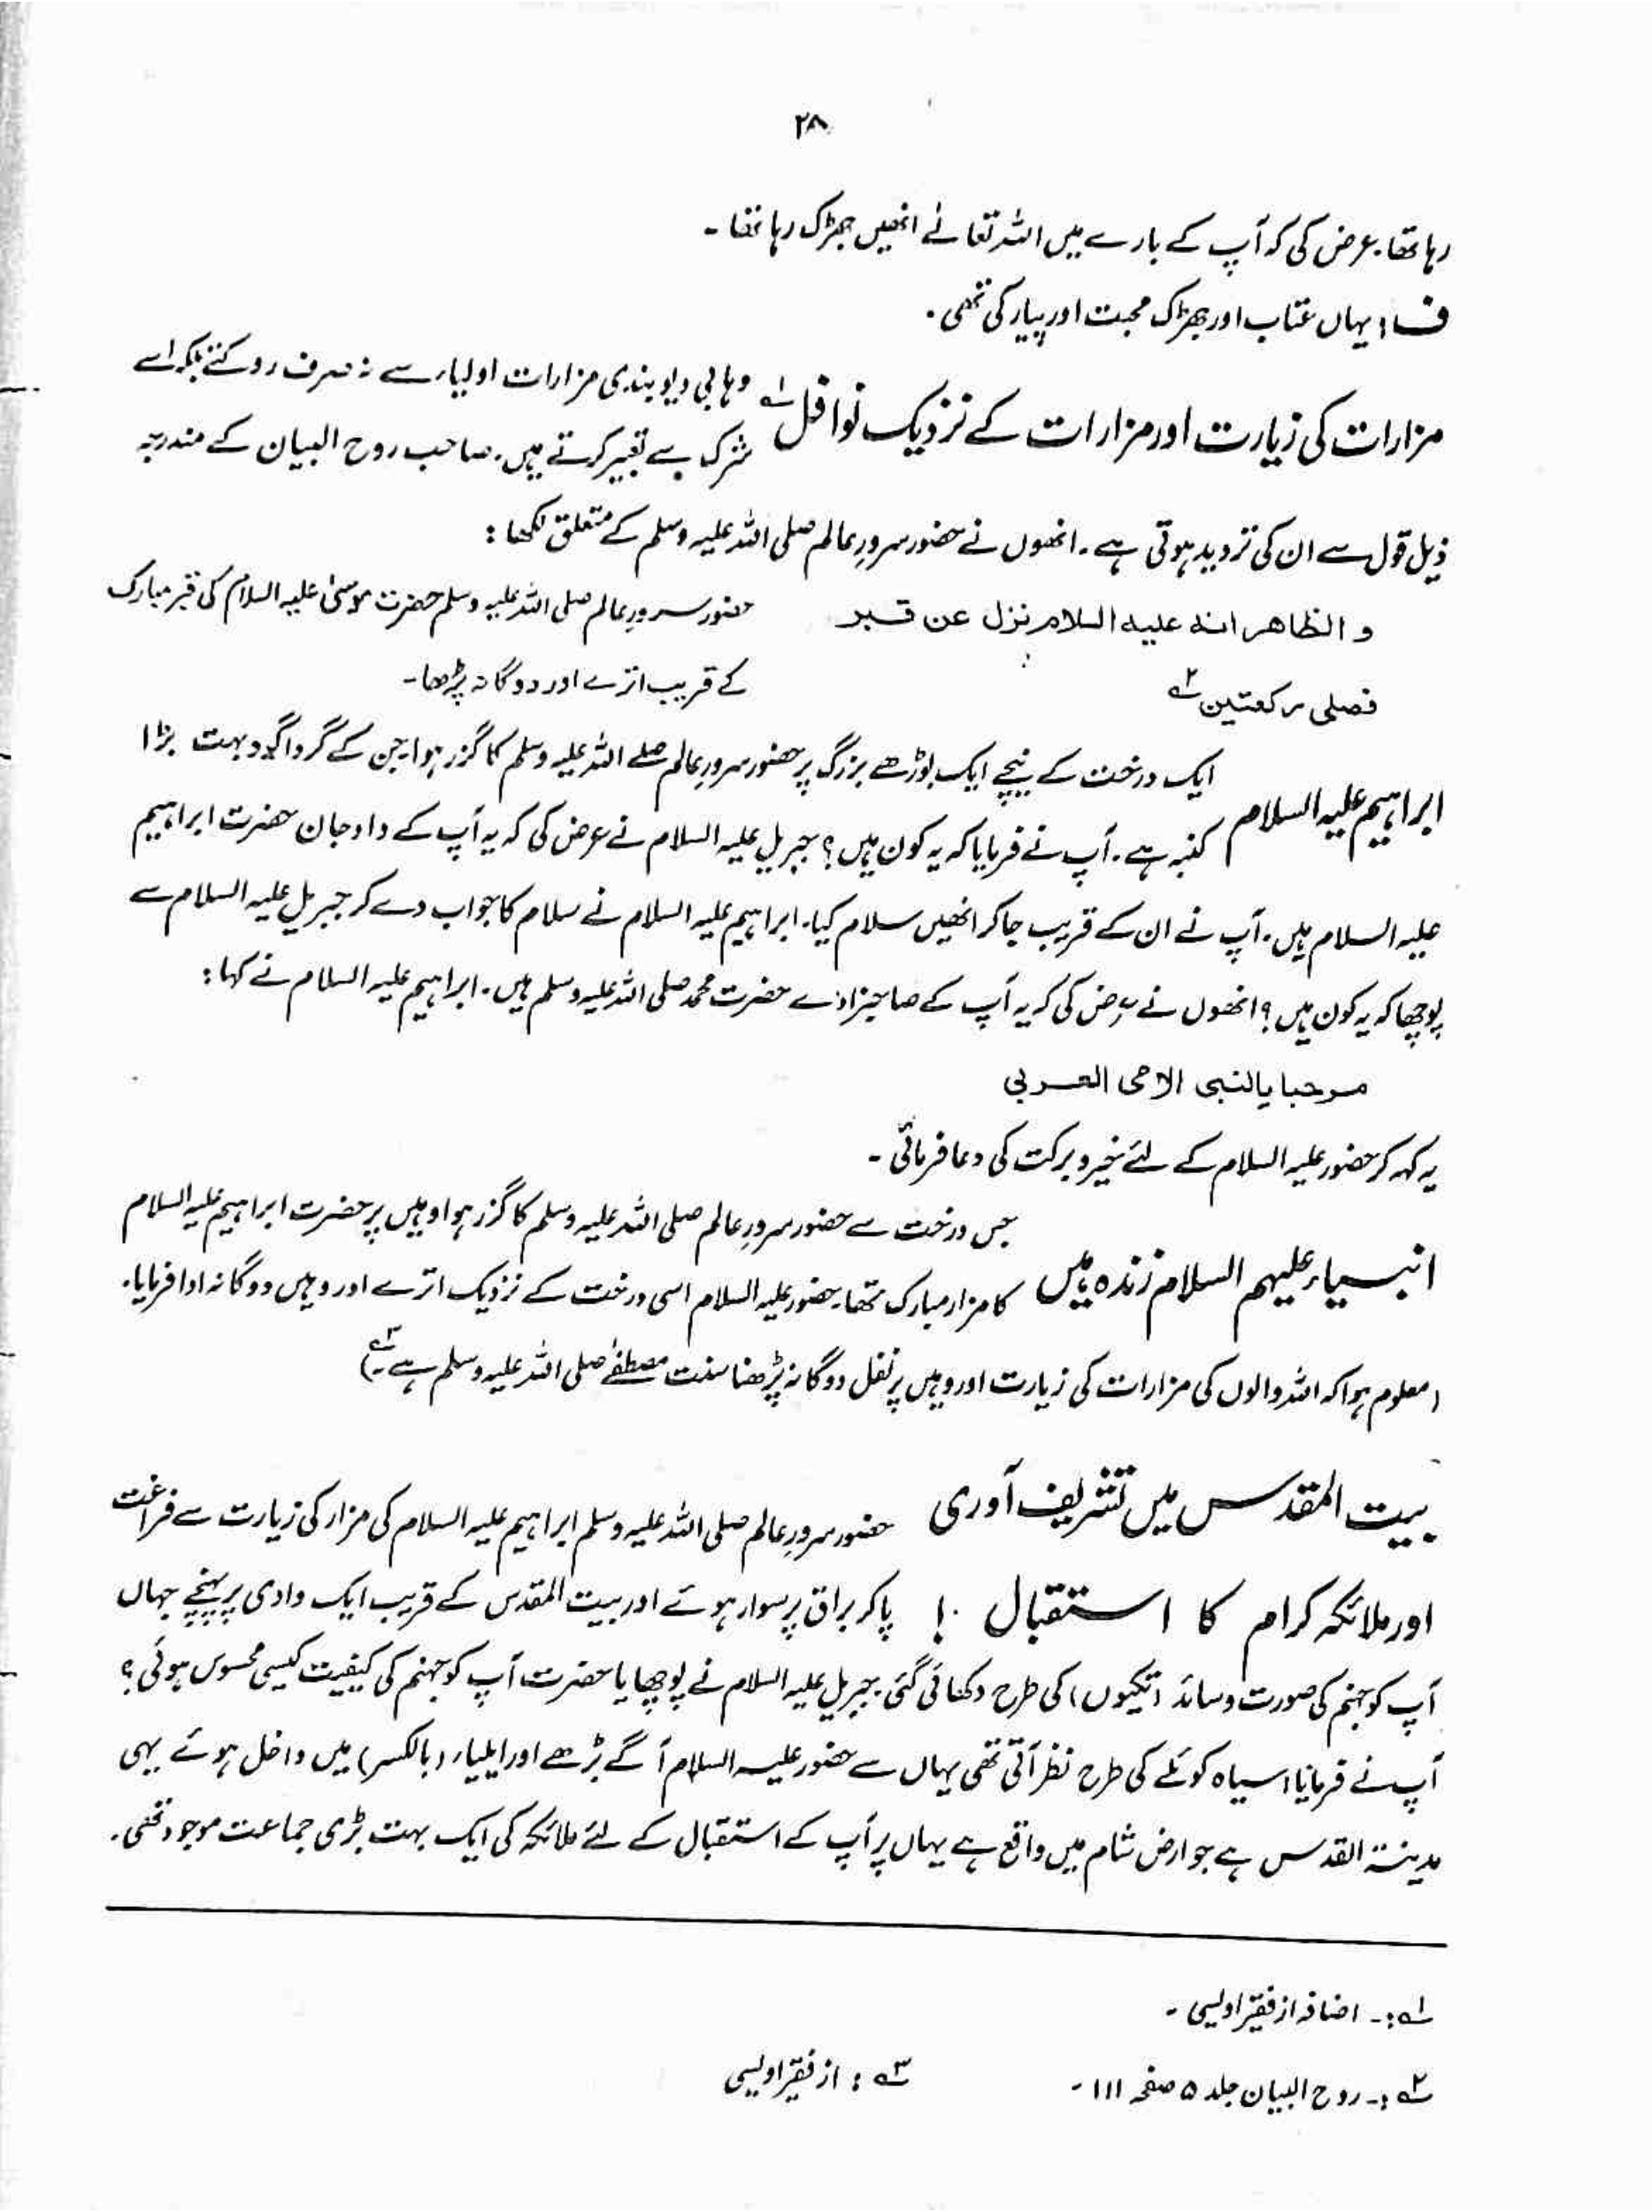 ۲۸
رہا تھا۔ عرض کی کہ آپ کے بارے میں اللہ تعالےٰ نے انھیں جھڑک رہا تھا۔
ف : یہاں عتاب اور جھڑک محبت اور پیار کی تھی۔
مزارات کی زیارت اور مزارات کے نزدیک نوافل ۱ھ وہابی دیوبندی مزارات اولیاء سے نہ صرف روکتے بلکہ اسے
شرک سے تعبیر کرتے ہیں۔ صاحب روح البیان کے مندرجہ
ذیل قول سے ان کی تردید ہوتی ہے۔ انھوں نے حضور سرورِ عالم صلی اللہ علیہ وسلم کے متعلق لکھا :
و الظاھر انہ علیہ السلام نزل عن قبر حضور سرورِ عالم صلی اللہ علیہ وسلم حضرت موسیٰ علیہ السلام کی قبر مبارک
فصلی رکعتین ۲ھ کے قریب اترے اور دوگانہ پڑھا۔
ابراہیم علیہ السلام ایک درخت کے نیچے ایک بوڑھے بزرگ پر حضور سرورِ عالم صلے اللہ علیہ وسلم کا گزر ہوا جن کے گرداگرد بہت بڑا
کنبہ ہے۔ آپ نے فرمایا کہ یہ کون ہیں؟ جبریل علیہ السلام نے عرض کی کہ یہ آپ کے داداجان حضرت ابراہیم
علیہ السلام ہیں۔ آپ نے ان کے قریب جا کر انھیں سلام کیا۔ ابراہیم علیہ السلام نے سلام کا جواب دے کر جبریل علیہ السلام سے
پوچھا کہ یہ کون ہیں؟ انھوں نے عرض کی کہ یہ آپ کے صاحبزادے حضرت محمد صلی اللہ علیہ وسلم ہیں۔ ابراہیم علیہ السلام نے کہا :
مرحبا بالنبی الامی العربی
یہ کہہ کر حضور علیہ السلام کے لئے خیر و برکت کی دعا فرمائی۔
انبیاء علیہم السلام زندہ ہیں جس درخت سے حضور سرورِ عالم صلی اللہ علیہ وسلم کا گزر ہوا وہیں پر حضرت ابراہیم علیہ السلام
کا مزار مبارک تھا۔ حضور علیہ السلام اسی درخت کے نزدیک اترے اور وہیں دوگانہ ادا فرمایا۔
(معلوم ہوا کہ اللہ والوں کی مزارات کی زیارت اور وہیں پر نفل دوگانہ پڑھنا سنت مصطفےٰ صلی اللہ علیہ وسلم ہے۔ ۳ھ)
بیت المقدس میں تشریف آوری حضور سرورِ عالم صلی اللہ علیہ وسلم ابراہیم علیہ السلام کی مزار کی زیارت سے فراغت
اور ملائکہ کرام کا استقبال ! پا کر براق پر سوار ہوئے اور بیت المقدس کے قریب ایک وادی پر پہنچے جہاں
آپ کو جہنم کی صورت وسائد (تکیوں) کی طرح دکھائی گئی۔ جبریل علیہ السلام نے پوچھا یا حضرت آپ کو جہنم کی کیفیت کیسی محسوس ہوئی؟
آپ نے فرمایا سیاہ کوئلے کی طرح نظر آتی تھی یہاں سے حضور علیہ السلام آگے بڑھے اور ایلیاء (بالکسر) میں داخل ہوئے یہی
مدینۃ القدس ہے جو ارض شام میں واقع ہے یہاں پر آپ کے استقبال کے لئے ملائکہ کی ایک بہت بڑی جماعت موجود تھی۔
۱ھ :۔ اضافہ از فقیر اویسی۔
۲ھ :۔ روح البیان جلد ۵ صفحہ ۱۱۱۔ ۳ھ : از فقیر اویسی